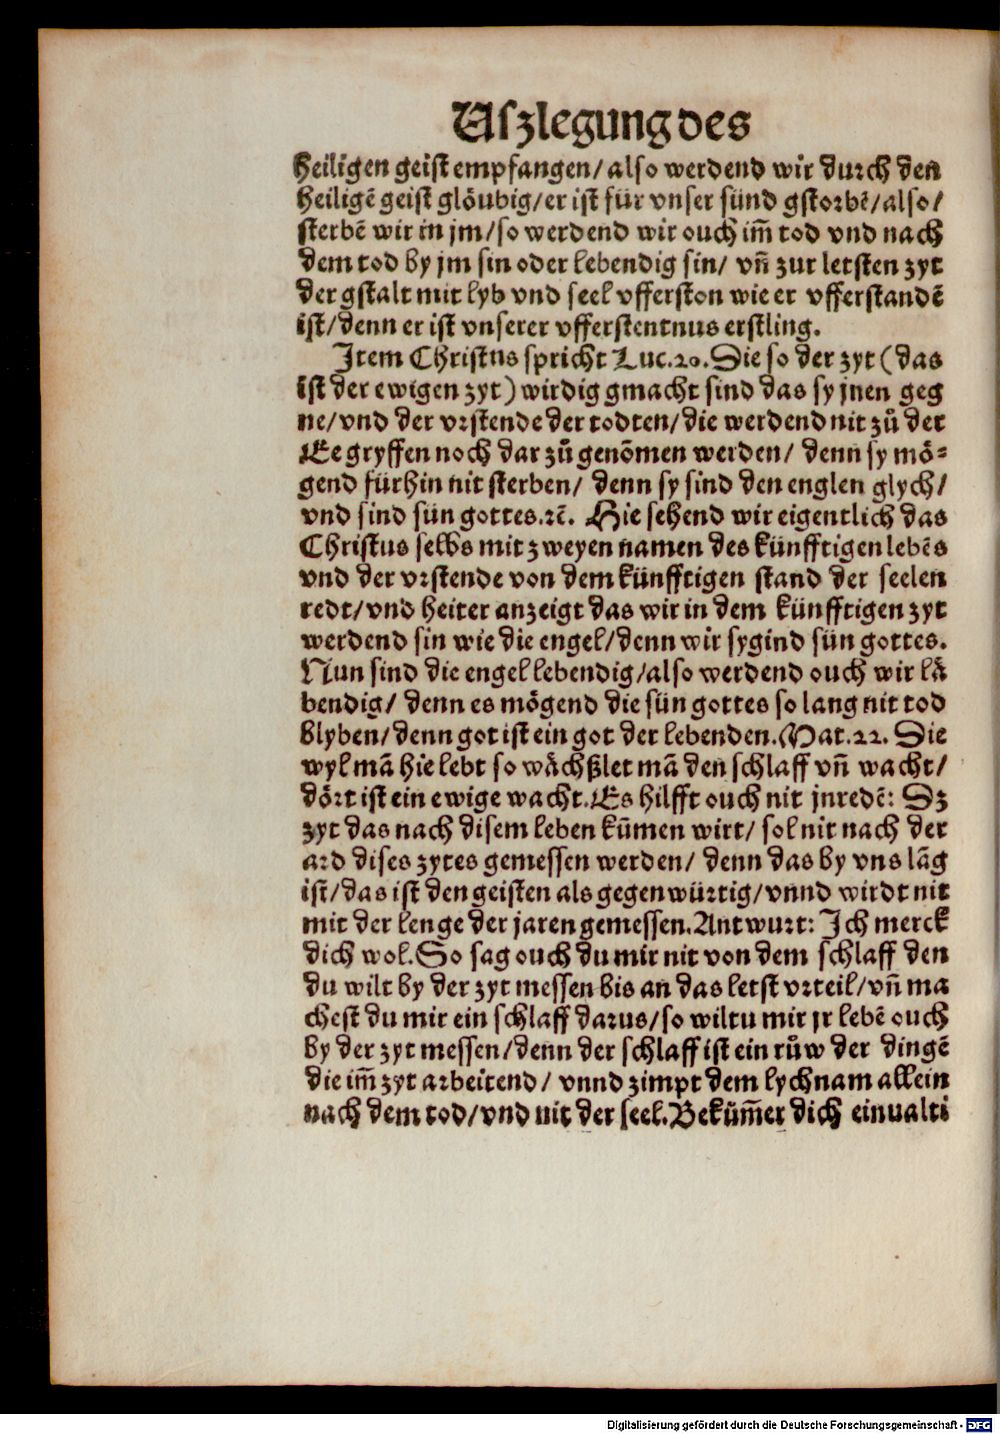 Uſzlegung des
heiligen geist empfangen/ also werdend wir durch den
heiligē geist glöubig/ er ist für vnser sünd gstorbē/ also/
sterbē wir in jm/ so werdend wir ouch im̄ tod vnd nach
dem tod by jm sin oder lebendig sin/ vn̄ zur letsten zyt
der gstalt mit lyb vnd seel vfferston wie er vfferstandē
ist/ denn er ist vnserer vfferstentnus erstling.
Item Christus spricht Luc.20. Die so der zyt (das
ist der ewigen zyt) wirdig gmacht sind das sy jnen geg
ne/ vnd der vrstende der todten/ die werdend nit zů der
Ee gryffen noch dar zů genōmen werden/ denn sy mö-
gend fürhin nit sterben/ denn sy sind den englen glych/
vnd sind sün gottes.ꝛc̄. Hie sehend wir eigentlich das
Christus selbs mit zweyen namen des künfftigen lebēs
vnd der vrstende von dem künfftigen stand der seelen
redt/ vnd heiter anzeigt das wir in dem künfftigen zyt
werdend sin wie die engel/ denn wir sygind sün gottes.
Nun sind die engel lebendig/ also werdend ouch wir lä
bendig/ denn es mögend die sün gottes so lang nit tod
blyben/ denn got ist ein got der lebenden. Mat.22. Die
wyl mā hie lebt so wächßlet mā den schlaff vn̄ wacht/
dört ist ein ewige wacht. Es hilfft ouch nit jnredē: Dz
zyt das nach disem leben kūmen wirt/ sol nit nach der
ard dises zytes gemessen werden/ denn das by vns lāg
ist/ das ist den geisten als gegenwürtig/ vnnd wirdt nit
mit der lenge der jaren gemessen. Antwurt: Ich merck
dich wol. So sag ouch du mir nit von dem schlaff den
du wilt by der zyt messen bis an das letst vrteil/ vn̄ ma
chest du mir ein schlaff darus/ so wiltu mir jr lebē ouch
by der zyt messen/ denn der schlaff ist ein růw der dingē
die im̄ zyt arbeitend/ vnnd zimpt dem lychnam allein
nach dem tod/ vnd nit der seel. Bekūm̄er dich einualti
Digitalisierung gefördert durch die Deutsche Forschungsgemeinschaft - DFG